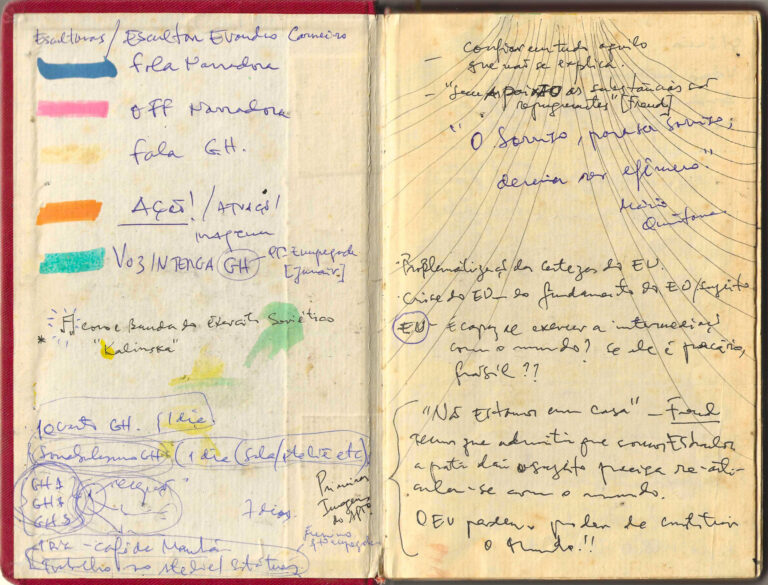 Esculturas / Escultor Evandro Carneiro
fala Narradora
off Narradora
fala GH.
AÇÃO! / ATUAÇÃO /
imagem
VOZ INTERNA GH - p/ Empregada
[Janair]
coro e Banda do Exército Soviético
* "Kalinska"
quarto GH. / 1 dia.
(1 dia (Sala/ateliê etc)
GH 1
GH 2
GH 3
7 dias
Primeiras
Imagens
do APTO
café da Manhã
Trabalho no atelier/ estátuas
- confiar em tudo aquilo
que não se explica.
- "Sem a paixão as substâncias são
repugnantes" [Freud]
"O Sorriso, para ser Sorriso,
deveria ser efêmero."
Mário
Quintana
- Problematização das certezas do EU.
- Crise do EU - do fundamento do EU/sujeito
EU - É capaz de exercer a intermediação
com o mundo? Se ele é precário,
frágil??
"Não Estamos em casa" - Freud
temos que admitir que somos Estranhos
a partir daí o sujeito precisa re-arti-
cular-se com o mundo.
O EU perdeu o poder de constituir
o Mundo!!